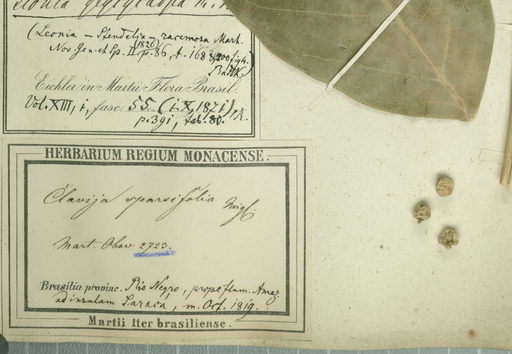 Leonia glycycarpa R. 
(Leonia — Steudelia — racemosa Mart.
Nov. Gen. et Sp. II (1826) p. 86, t. 168 & 200 fig. 4.
Eichler in Martii Flora Brasil.
Vol. XIII, i, fasc. 55 (i.X, 1871)
p. 391, tab. 80.
HERBARIUM REGIUM MONACENSE.
Clavija sparsifolia
Mart. Obsv. 2723.
Brasilia provinc. Rio Negro, prope flum. Amaz.
ad insulam Saraca, m. Oct. 1819.
Martii Iter brasiliense.